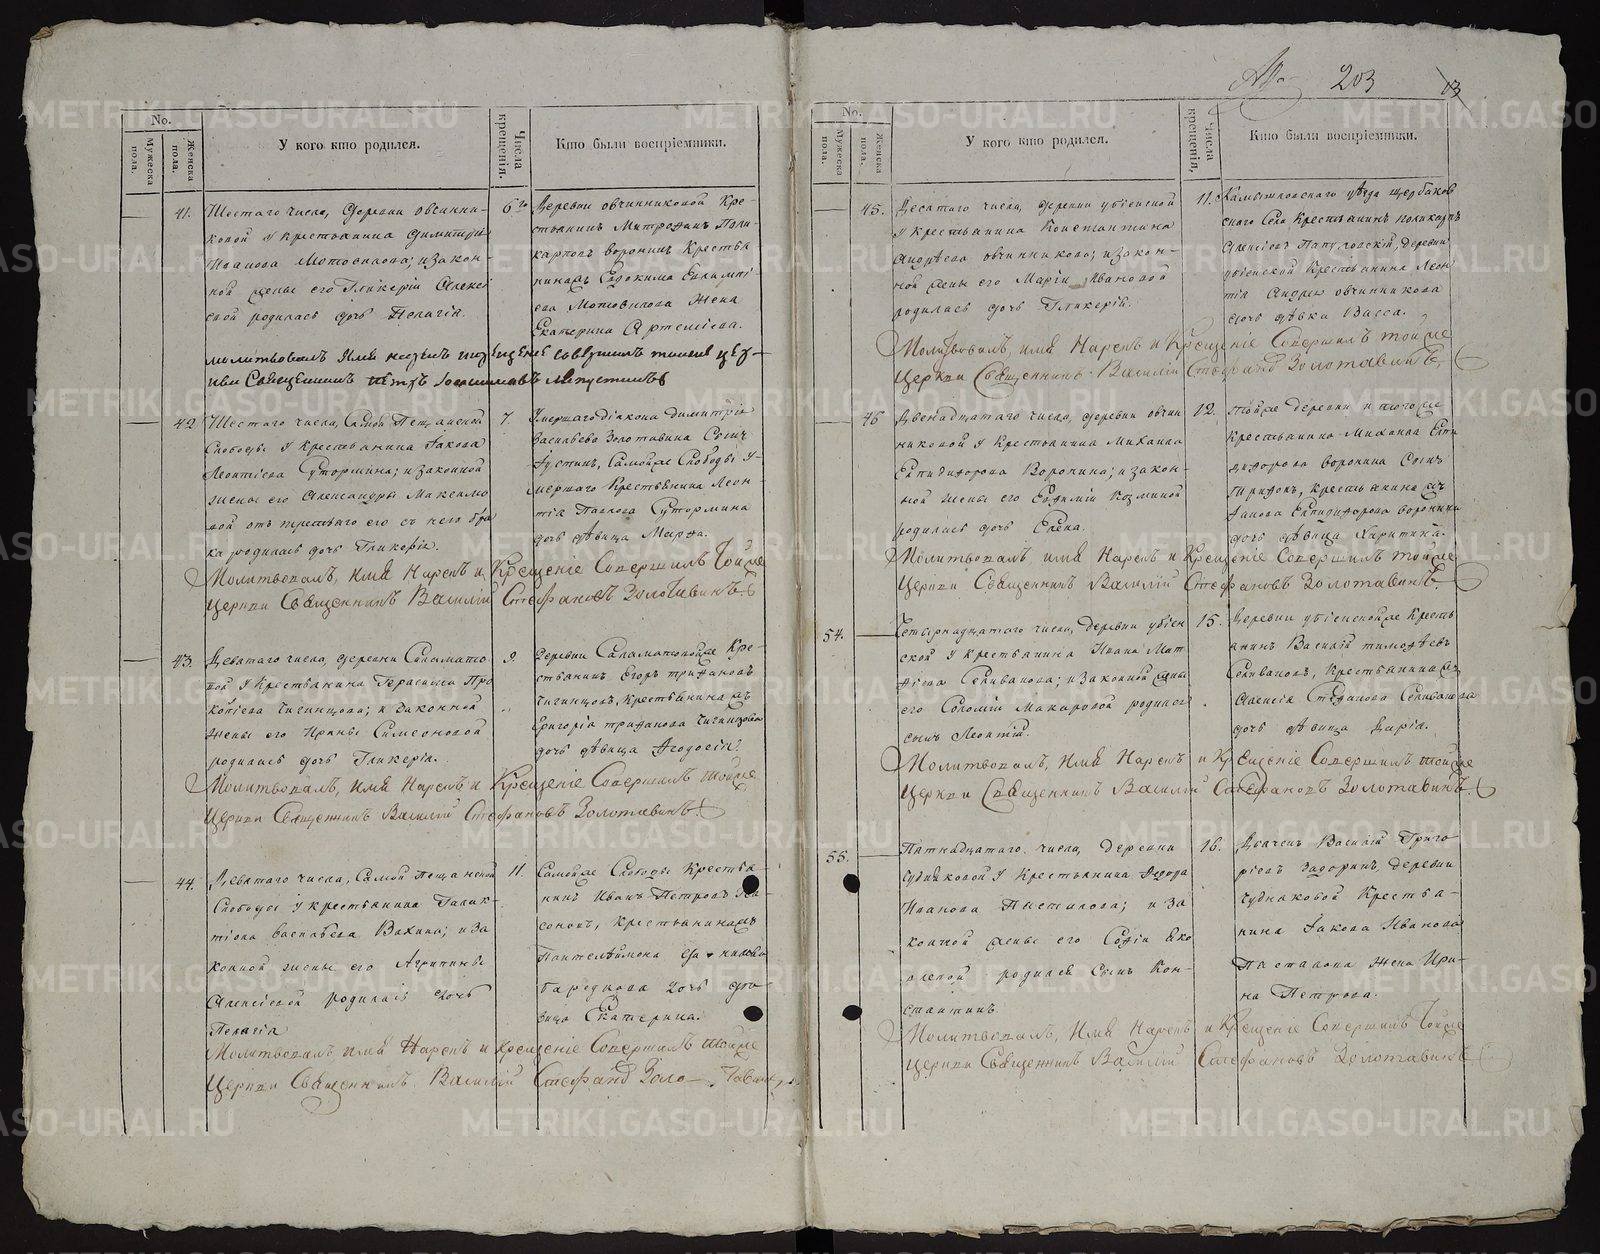 203
No.
Мужеска пола.
Женска пола.
У кого кто родился.
Числа крещенія.
Кто были воспріемники.
41.
Шостаго числа, деревни овчинни-
ковой у крестьянина Димитрія
Иванова Мотовилова; и закон-
ной жены его Гликеріи Алексі
евой родилась дочь Пелагія.
6го
Деревни овчинниковой Кре-
стьянинъ Митрофанъ Поли-
карповъ воронинъ Крестья
нина Евдокима
Мотовилова Жена
Екатерина Артеміева.
Священникъ Петръ
42.
Шестаго числа, Самой Пещанской
Слободы у Крестьянина Іакова
Леонтіева Сутормина; и законной
жены его Александры Максимо
вой отъ третьяго его съ нею бра
ка родилась дочь Гликерія.
7.
Умершаго діякона Димитрія
Васильева Золотавина Сынъ
Іустинъ, Самойже Слободы у-
мершаго Крестьянина Леон-
тія Павлова Сутормина
дочь дѣвица Марфа.
Молитвовалъ, имя Нарекъ и Крещеніе Совершилъ Тойже
Церкви Священникъ Василій Стефановъ Золотавинъ.
43.
Девятаго числа, деревни Саламато-
вой у Крестьянина Герасима Про
копіева Чигинцова; и Законной
жены его Ирины Симеоновой
родилась дочь Гликерія.
9.
Деревни Саламатовойже Кре-
стьянинъ Егоръ трифановъ
Чигинцовъ, Крестьянина
Григорія трифанова Чигинцова
дочь дѣвица Феодосія.
Молитвовалъ, имя Нарекъ и Крещеніе Совершилъ тойже
Церкви Священникъ Василій Стефановъ Золотавинъ.
44.
Девятаго числа, Самой Пещанской
Слободы у крестьянина Галак-
тіона Васильева Вахина; и за
конной жены его Агрипины
Алексіевой родилась дочь
Пелагія
11.
Самойже Слободы Крестья-
нинъ Иванъ Петровъ
крестьянина
Пантелѣимона
дочь дѣ-
вица Екатерина.
Молитвовалъ имя Нарекъ и Крещеніе Совершилъ Тойже
Церкви Священникъ Василій Стефановъ Золо- тавинъ
No.
Мужеска пола.
Женска пола.
У кого кто родился.
Числа крещенія,
Кто были воспріемники.
45.
Десятаго числа, деревни убіенской
у крестьянина Константина
Андрѣева овчинникова; и закон-
ной жены его Маріи Ивановой
родилась дочь Гликерія.
11.
Камышловскаго уѣзда щербаков
скаго Села Крестьянинъ поликарпъ
Алексіевъ Папуловскій, Деревни
убіенской Крестьянина Леон
тія Андрѣева овчинникова
дочь дѣвка Васса.
Молитвовалъ, имя Нарекъ и Крещеніе Совершилъ тойже
Церкви Священникъ Василій Стефановъ Золотавинъ.
46
Двенадцатаго числа, деревни овчин
никовой у Крестьянина Михаила
Елпидифорова Воронина; и закон-
ной жены его Евфиміи Козминой
родилась дочь Елена.
12.
Тойже деревни и тогоже
Крестьянина Михаила Елпи
дифорова Воронина Сынъ
Трифонъ, Крестьянина
Елпидифорова Воронина
дочь дѣвица Харитина.
Молитвовалъ имя Нарекъ и Крещеніе Совершилъ тойже
Церкви Священникъ Василій Стефановъ Золотавинъ
54.
Четырнадцатаго числа, Деревни убіен
ской у крестьянина Ивана Мат
фіева Селиванова; и законной жены
его Соломіи Макаровой родился
сынъ Леонтій.
15.
Деревни убіенскойже Кресть
янинъ Василій тимофѣевъ
Селивановъ, Крестьянина
Алексія Стефанова Селиванова
дочь дѣвица Дарія.
Молитвовалъ, имя Нарекъ и Крещеніе Совершилъ тойже
Церкви Священникъ Василій Стефановъ Золотавинъ.
55.
Пятнадцатаго числа, деревни
Чудняковой у Крестьянина Феодора
Иванова Пасталова; и за
конной жены его Софіи Яко
влевой родился Сынъ Кон-
стантинъ
16.
Дьячекъ Василій Григо
ріевъ Задоринъ, деревни
Чудняковой Крестья-
нина Іакова Иванова
Пасталова жена Ири-
на Петрова.
Молитвовалъ, имя Нарекъ и Крещеніе Совершилъ Тойже
Церкви Священникъ Василій Стефановъ Золотавинъ
METRIKI.GASO-URAL.RU